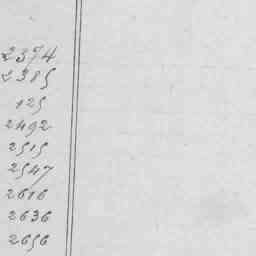 2374
2385
125
2492
2515
2547
2616
2636
2656